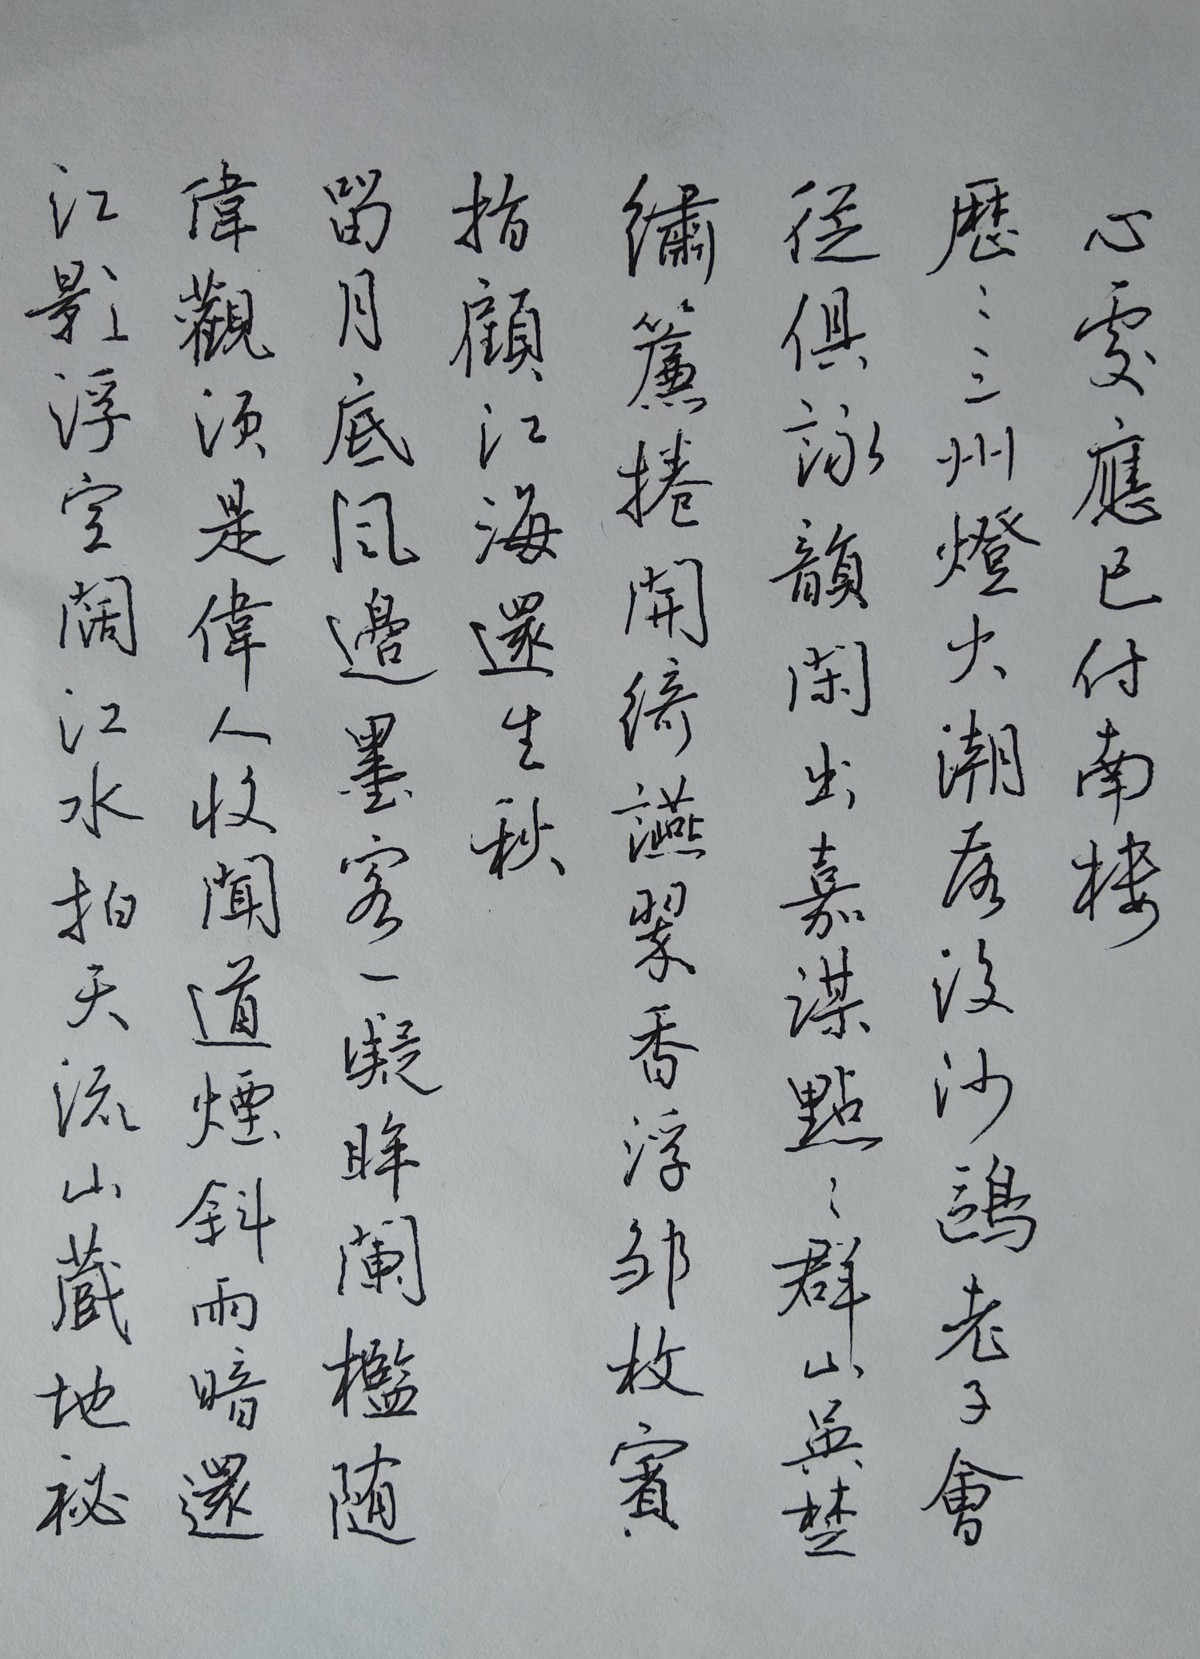 江影浮空闊江水拍天流山蔵地祕
偉觀須是偉人收聞道煙斜雨暗還
留月底風邊墨客一凝眸闌檻随
指顧江海還生秋
繡簾捲開綺讌翠香浮邹枚賓
從俱詠韻閑出嘉謀點〻群山吳楚
歷〻三州燈火潮落沒沙鷗老子會
心處應已付南楼